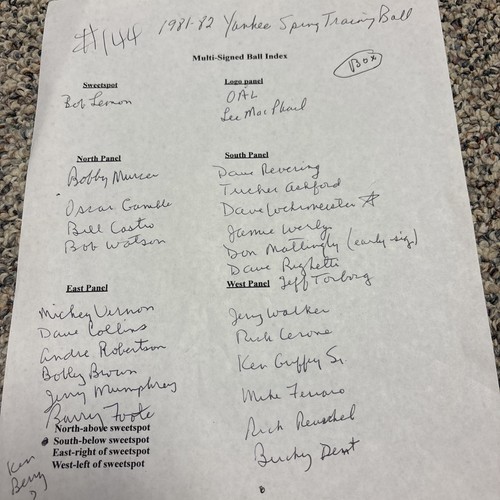 #144 1981-82 Yankee Sping Training Ball
Multi-Signed Ball Index
Box
Sweetspot
Bob Lemon
Logo panel
OAL
Lee MacPhail
North Panel
Bobby Murcer
Oscar Gamble
Bill Castro
Bob Watson
South Panel
Dave Revering
Tucker Ashford
Dave Wehrmeister ☆
Jamie Werly
Don Mattingly (early sig.)
Dave Righetti
Jeff Torborg
East Panel
Mickey Vernon
Dave Collins
Andre Robertson
Bobby Brown
Jerry Mumphrey
Barry Foote
West Panel
Jerry Walker
Rick Cerone
Ken Griffey Sr.
Mike Ferraro
Rick Reuschel
Bucky Dent
North-above sweetspot
South-below sweetspot
East-right of sweetspot
West-left of sweetspot
Ken
Berry
?